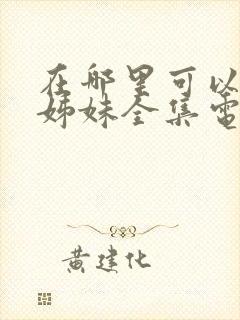 在哪里可以
姊妹全集電
黄建化